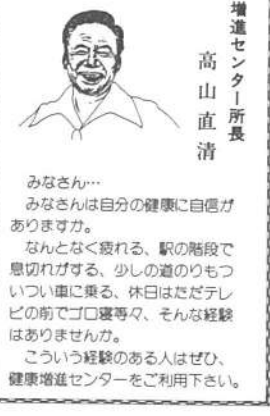 増進センター所長
高山直清
みなさん…
みなさんは自分の健康に自信が
ありますか。
なんとなく疲れる、駅の階段で
息切れがする、少しの道のりもつ
いつい車に乗る、休日はただテレ
ビの前でゴロ寝等々、そんな経験
はありませんか。
こういう経験のある人はぜひ、
健康増進センターをご利用下さい。